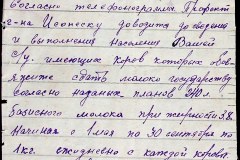 Согласно телефонограммы Префект
г-на Ионеску доводится до сведения
и выполнения населения Вашей
с/у. имеющих кров которых обя-
яжите сдать молоко государству
согласно наданных планов
базисного молока при жирности 3.8
начиная с 1 мая по 30 сентября по
1 кг. ежедневно с каждой коровы